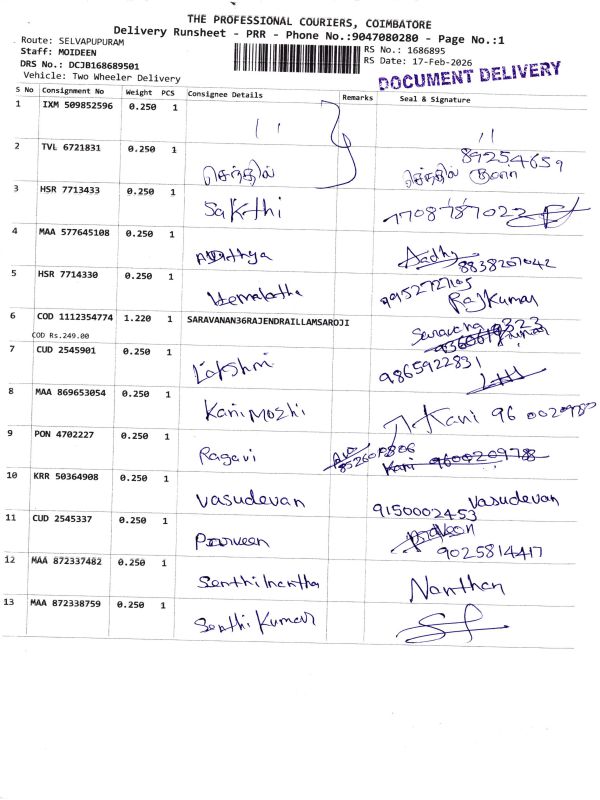 THE PROFESSIONAL COURIERS, COIMBATORE
Delivery Runsheet - PRR - Phone No.:9047080280 - Page No.:1
Route: SELVAPUPURAM
Staff: MOIDEEN
RS No.: 1686895
DRS No.: DCJB168689501
RS Date: 17-Feb-2026
Vehicle: Two Wheeler Delivery
DOCUMENT DELIVERY
S No Consignment No Weight PCS Consignee Details Remarks Seal & Signature
1 IXM 509852596 0.250 1 11 11
2 TVL 6721831 0.250 1 செந்தில் 89254659 செந்தில்
3 HSR 7713433 0.250 1 Sakthi 7708787022
4 MAA 577645108 0.250 1 Aadhy 8838207042
5 HSR 7714330 0.250 1 Hemalatha 9952727105 Rajkumar
6 COD 1112354774 1.220 1 SARAVANAN36RAJENDRAILLAMSAROJI
COD Rs.249.00
7 CUD 2545901 0.250 1 Lakshmi 9865922831
8 MAA 869653054 0.250 1 Kanimozhi Kani 96 0020978
9 PON 4702227 0.250 1 Ragavi Kani 9600209788
10 KRR 50364908 0.250 1 Vasudevan 9150002453 Vasudevan
11 CUD 2545337 0.250 1 Praveen Praveen 9025814417
12 MAA 872337482 0.250 1 Senthilnantha Nanthan
13 MAA 872338759 0.250 1 SenthiKumar